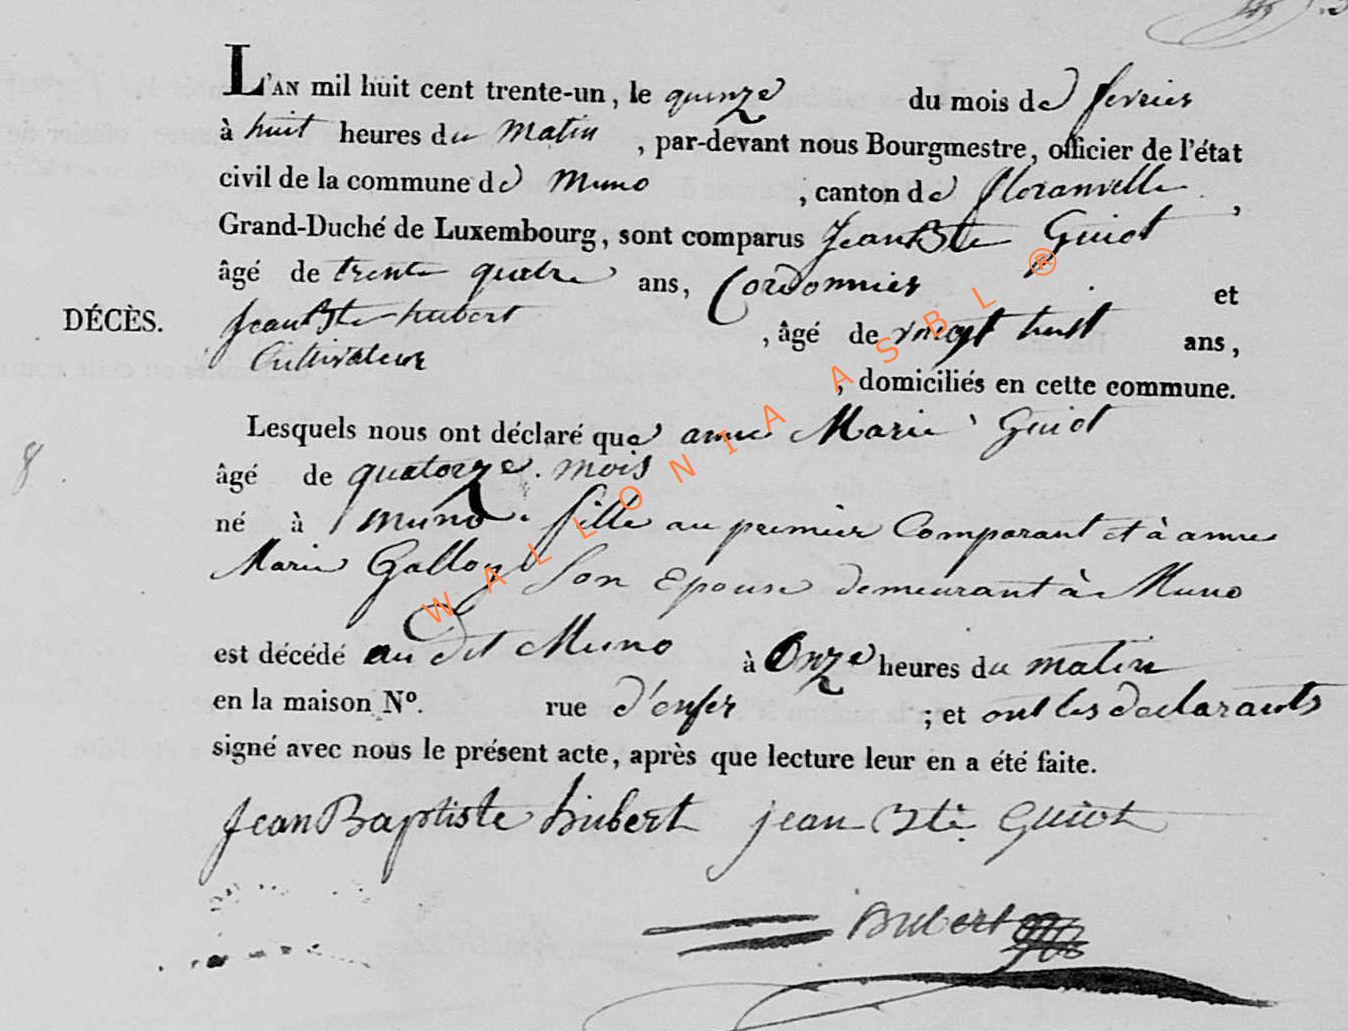 L'AN mil huit cent trente-un, le quinze du mois de fevrier
à huit heures du matin, par-devant nous Bourgmestre, officier de l'état
civil de la commune de Muno, canton de floranville,
Grand-Duché de Luxembourg, sont comparus Jean Bte Guiot
âgé de trente quatre ans, Cordonnier et
DÉCÈS.
Jean Bte hubert, âgé de vingt huit ans,
Cultivateur
, domiciliés en cette commune.
Lesquels nous ont déclaré que anne Marie Guiot
âgé de quatorze mois
8
né à Muno. fille au premier Comparant et à anne
Marie Galloy Son Epouse demeurant à Muno
est décédé au dit Muno à Onze heures du matin
en la maison No. rue d'enfer ; et ont les declarants
signé avec nous le présent acte, après que lecture leur en a été faite.
Jean Baptiste hubert jean Bte Guiot
WALLONIA ASBL ®